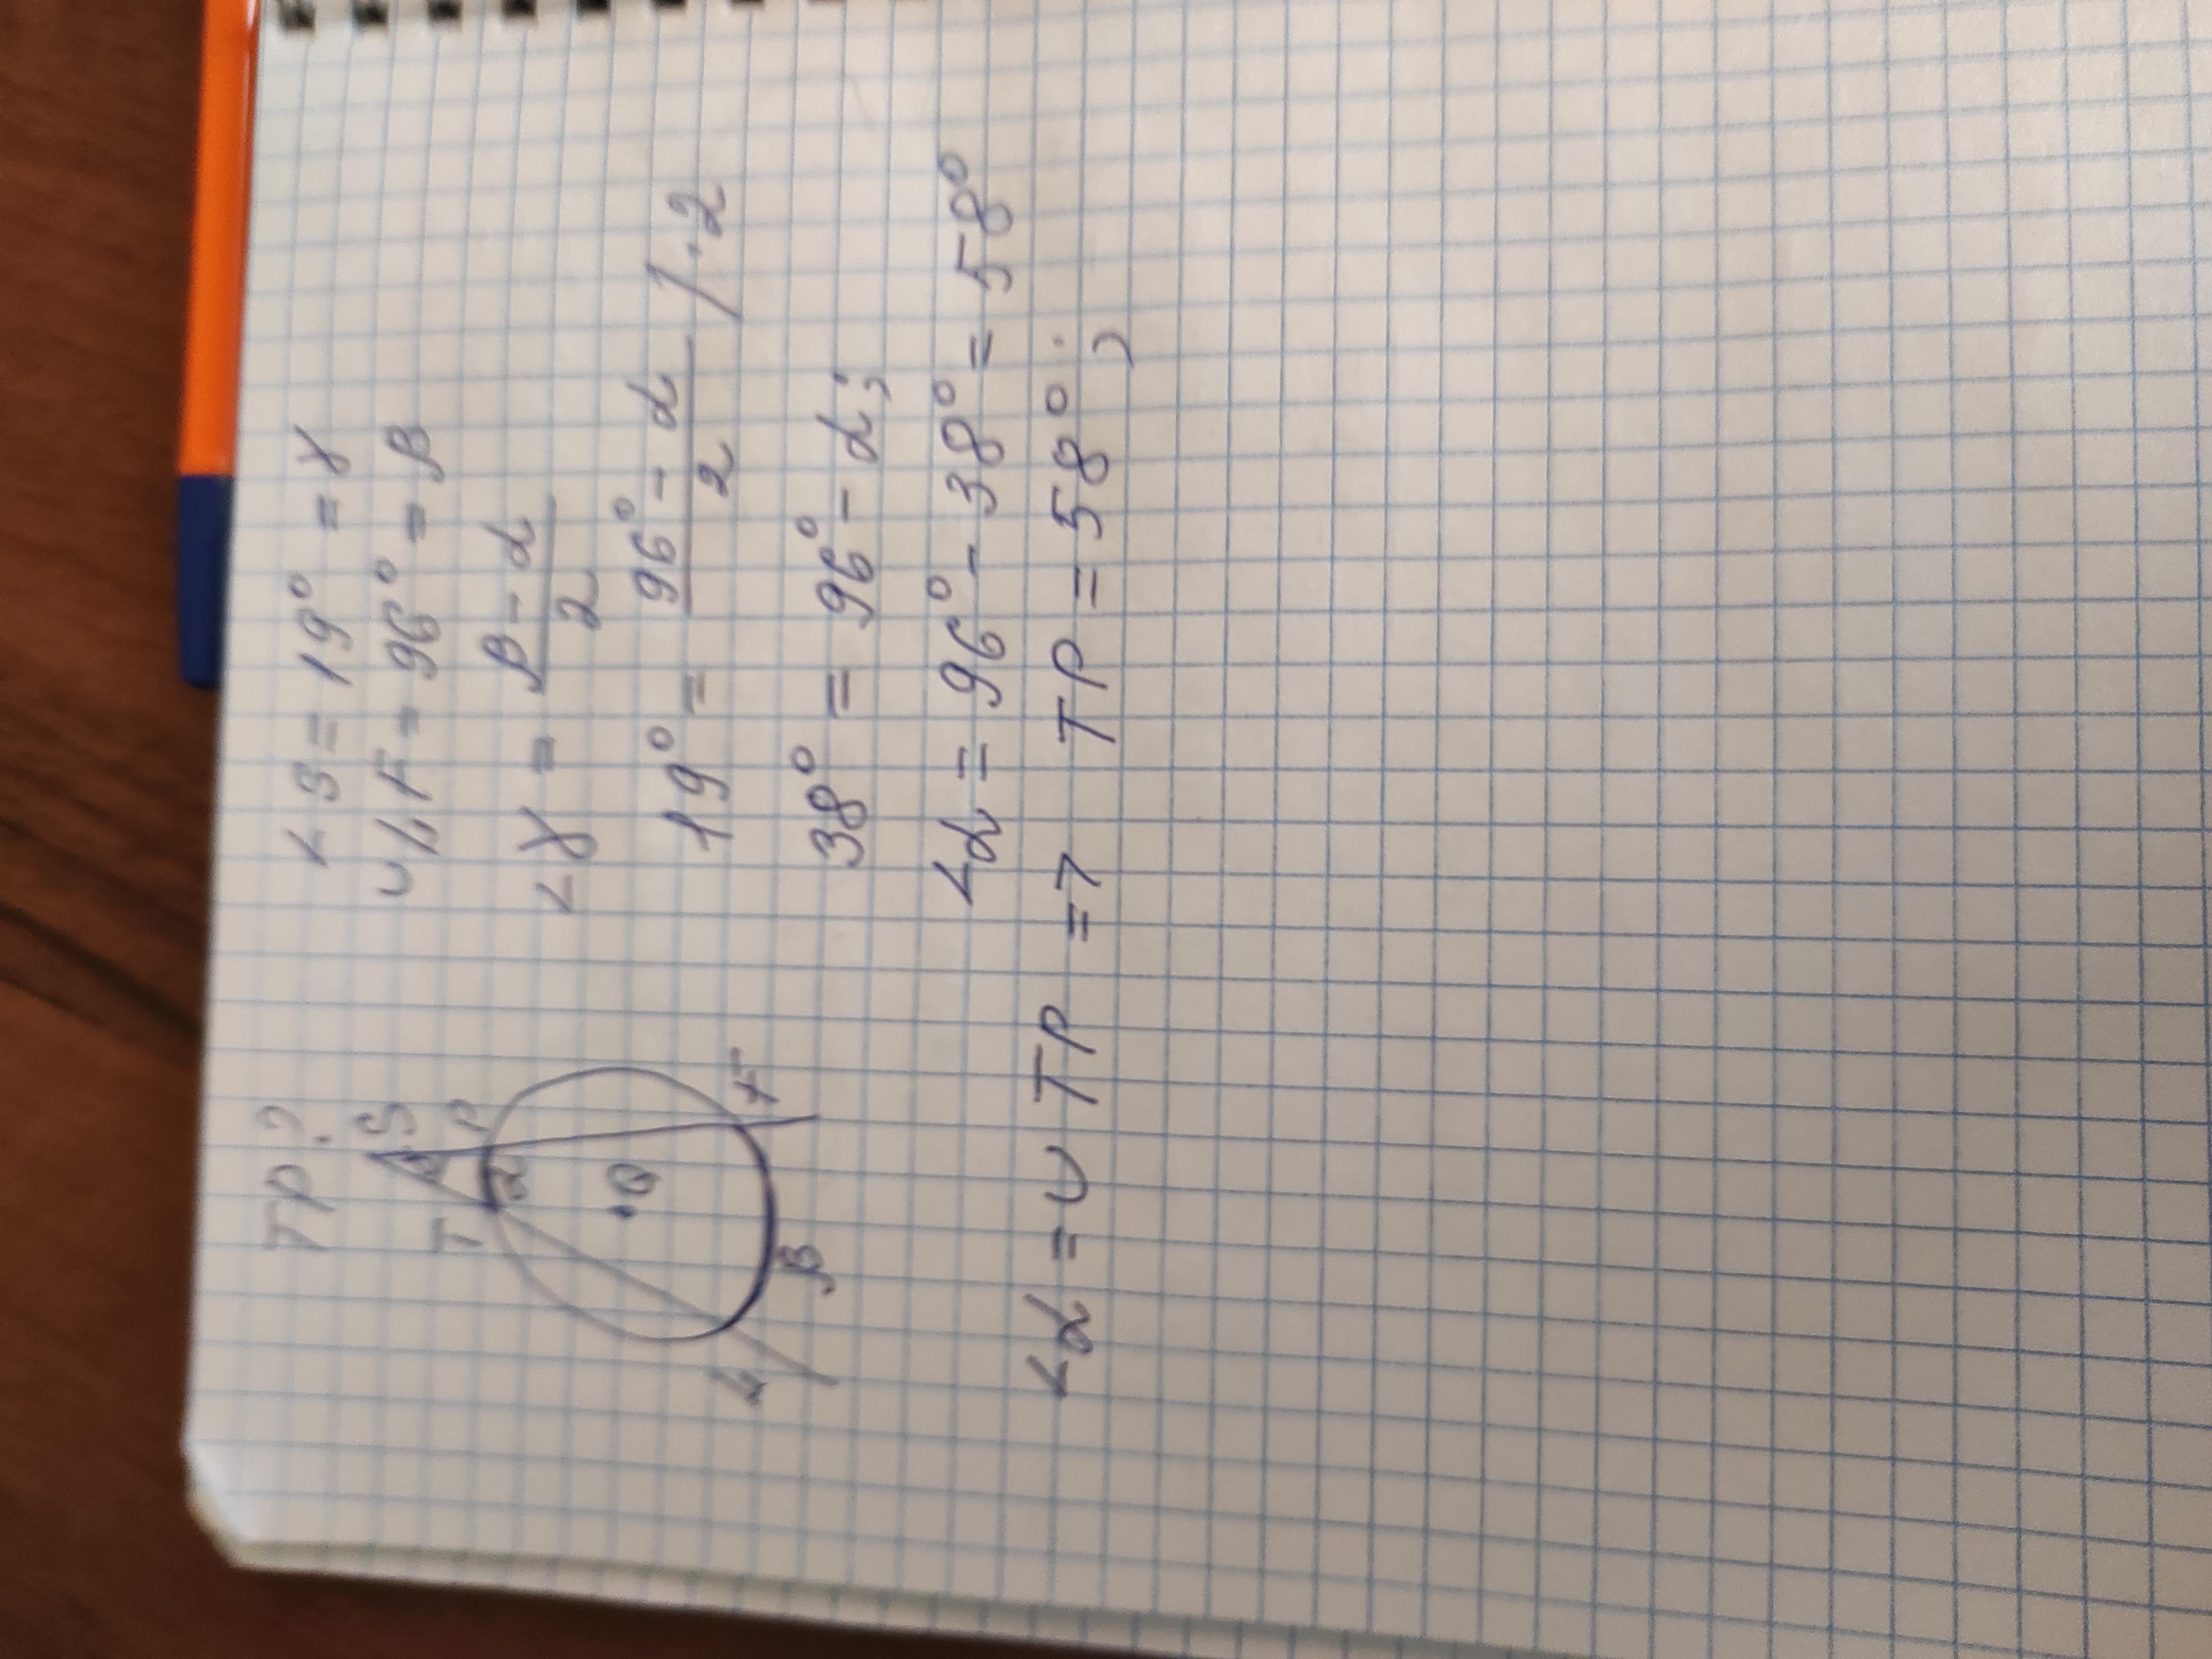 TP?
S
T P
α
O
L F
β
∠S = 19° = γ
∪LF = 96° = β
∠γ = (β - α)/2
19° = (96° - α)/2 /·2
38° = 96° - α;
∠α = 96° - 38° = 58°
∠α = ∪ TP => TP = 58°;